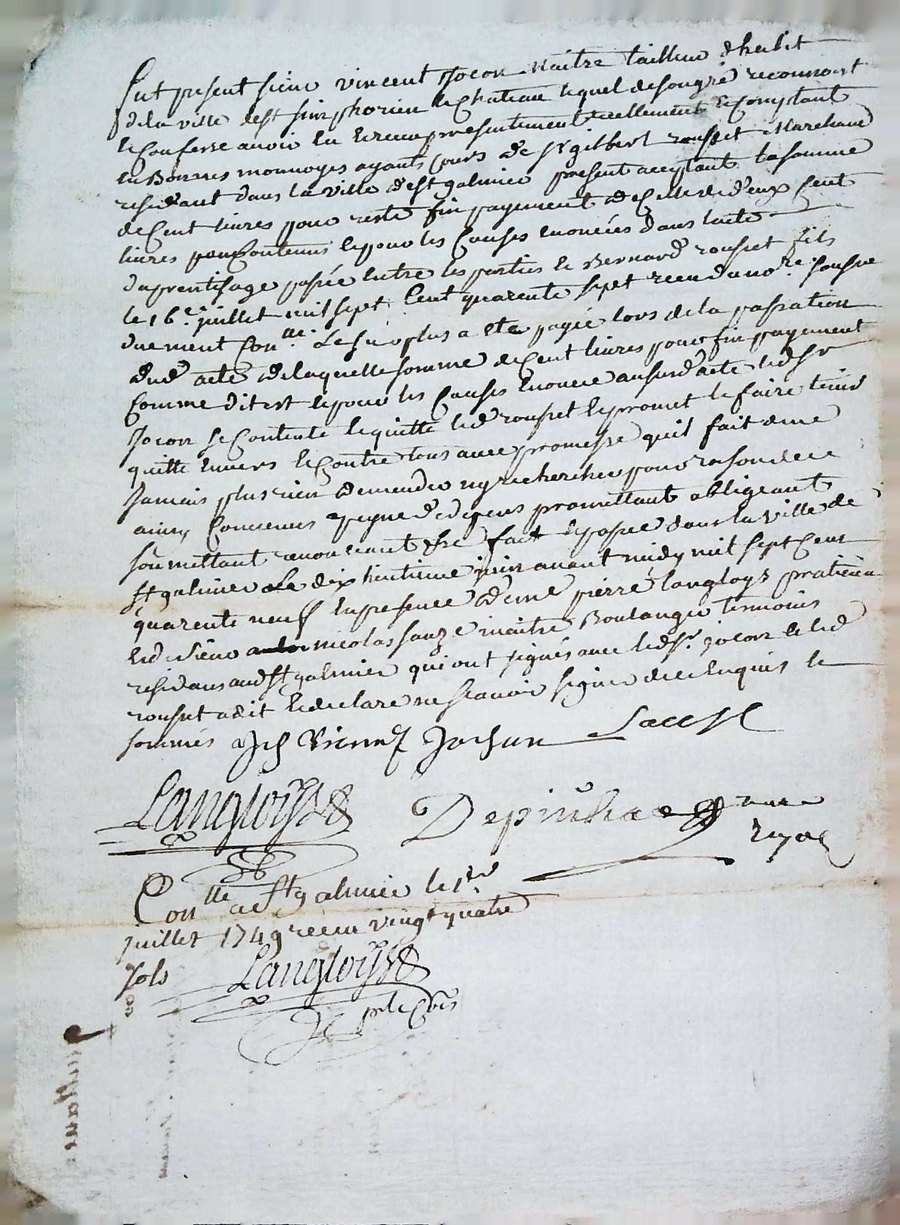 Fut present sieur vincent Jocon Maitre tailleur d'habit
de la ville de st simphorien le Chateau lequel de son gré reconnoist
et Confesse avoir eu et receu presentement reellement et Comptant
en Bonnes monnoyes ayants Cours de sr gilbert rousset Marchand
residant dans la ville de st galmier present acceptant la somme
de Cent livres pour reste et fin payement de Celle de d'eux Cent
livres pour Contenu et pour les Causes enoncées dans lacte
daprentissage passée entre les parties et Bernard rousset fils
le 16e juillet mil sept Cent quarente sept receu dud nore soussné
duement Conllé. Le surplus a eté payée lors de la passation
dud acte de laquelle somme de Cent livres pour fin payement
Comme dit est et pour les Causes enoncé aususd acte led sr
Jocon se Contente et quitte led rousset et promet le faire tenir
quitte envers et Contre tous avec promesse qu'il fait de ne
Jamais plus rien demander ny rechercher pour raison de ce
ainsy Convenus a peyne de depens promettant obligeant
soumettant renonceant &c fait et passé dans la ville de
St galmier Le dix huitieme juin avant midy mil sept Cent
quarente neuf en presence de me pierre Langloys praticien
et de sieur nicolas sauze maitre Boulanger temoins
residans aud St galmier qui ont signés avec led sr. jocon et led
rousset a dit et declaré ne scavoir signer de ce enquis et
sommés Vicent Jochon
Langloys
royal
Conllé a St galmier le 1er
juillet 1749 receu vingt quatre
sols Langloys